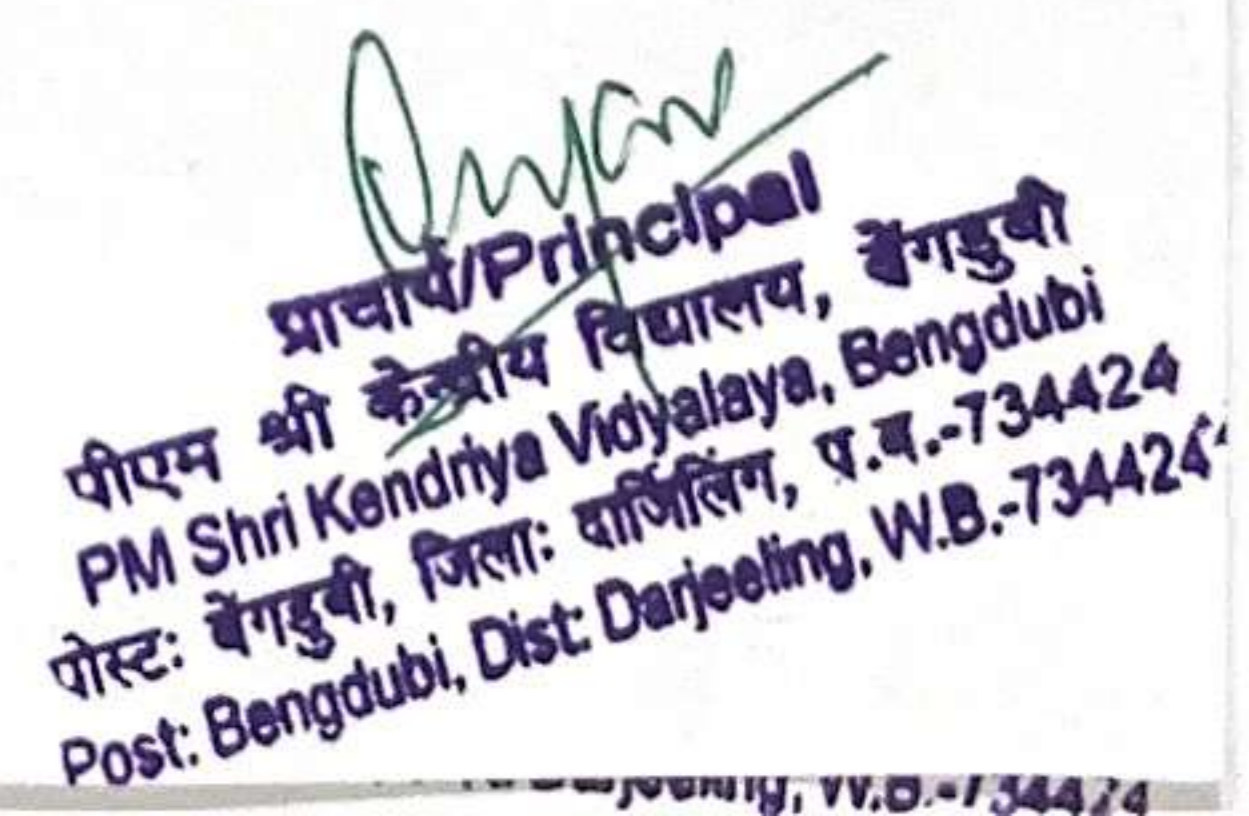 प्राचार्य/Principal
पीएम श्री केन्द्रीय विद्यालय, बेंगडुबी
PM Shri Kendriya Vidyalaya, Bengdubi
पोस्ट: बेंगडुबी, जिला: दार्जिलिंग, प.ब.-734424
Post: Bengdubi, Dist: Darjeeling, W.B.-734424
Darjeeling, W.B.-734424